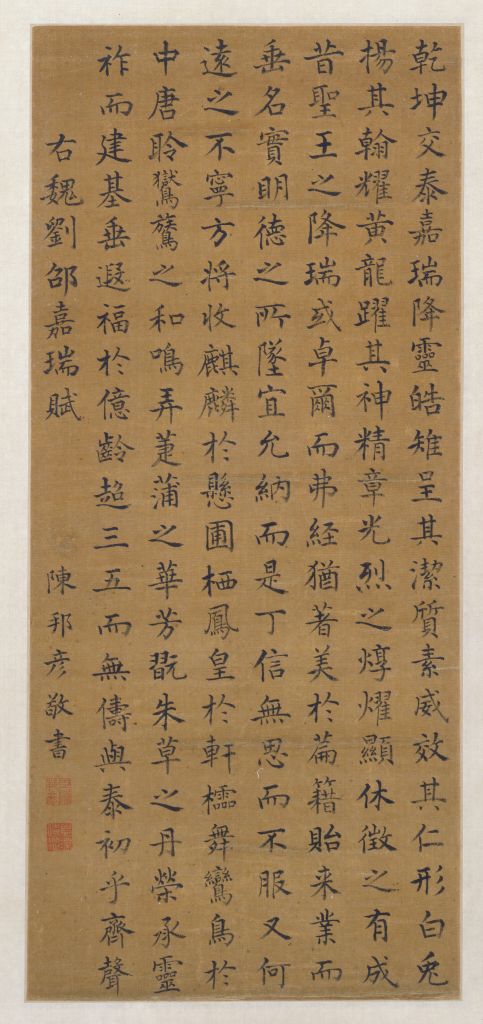 乾坤交泰嘉瑞降靈皓雉呈其潔質素威效其仁形白兎
楊其翰耀黃龍躍其神精章光烈之焞燿顯休徴之有成
昔聖王之降瑞或卓爾而弗経猶著美於篇籍貽来業而
垂名實明徳之所墜宜允納而是丁信無思而不服又何
遠之不寧方將收麒麟於懸圃栖鳳皇於軒櫺舞鸞鳥於
中唐聆鸑鷟之和鳴弄萐蒲之華芳翫朱草之丹榮承靈
祚而建基垂遐福於億齡超三五而無儔與泰初乎齊聲
右魏劉邵嘉瑞賦 陳邦彦敬書